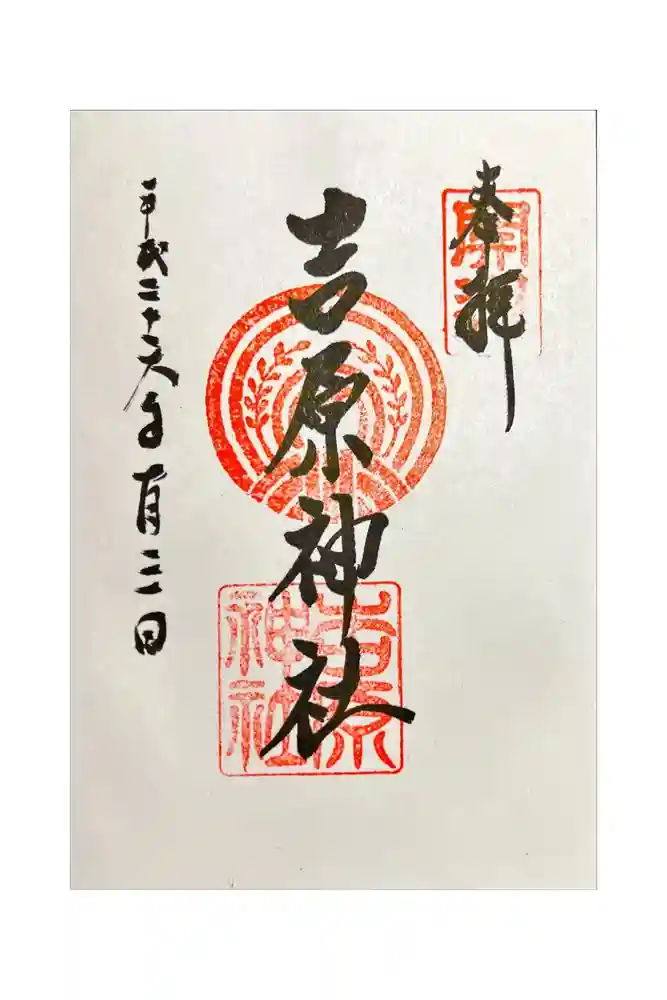 奉拝
吉原神社
平成二十六年一月三日
吉原神社